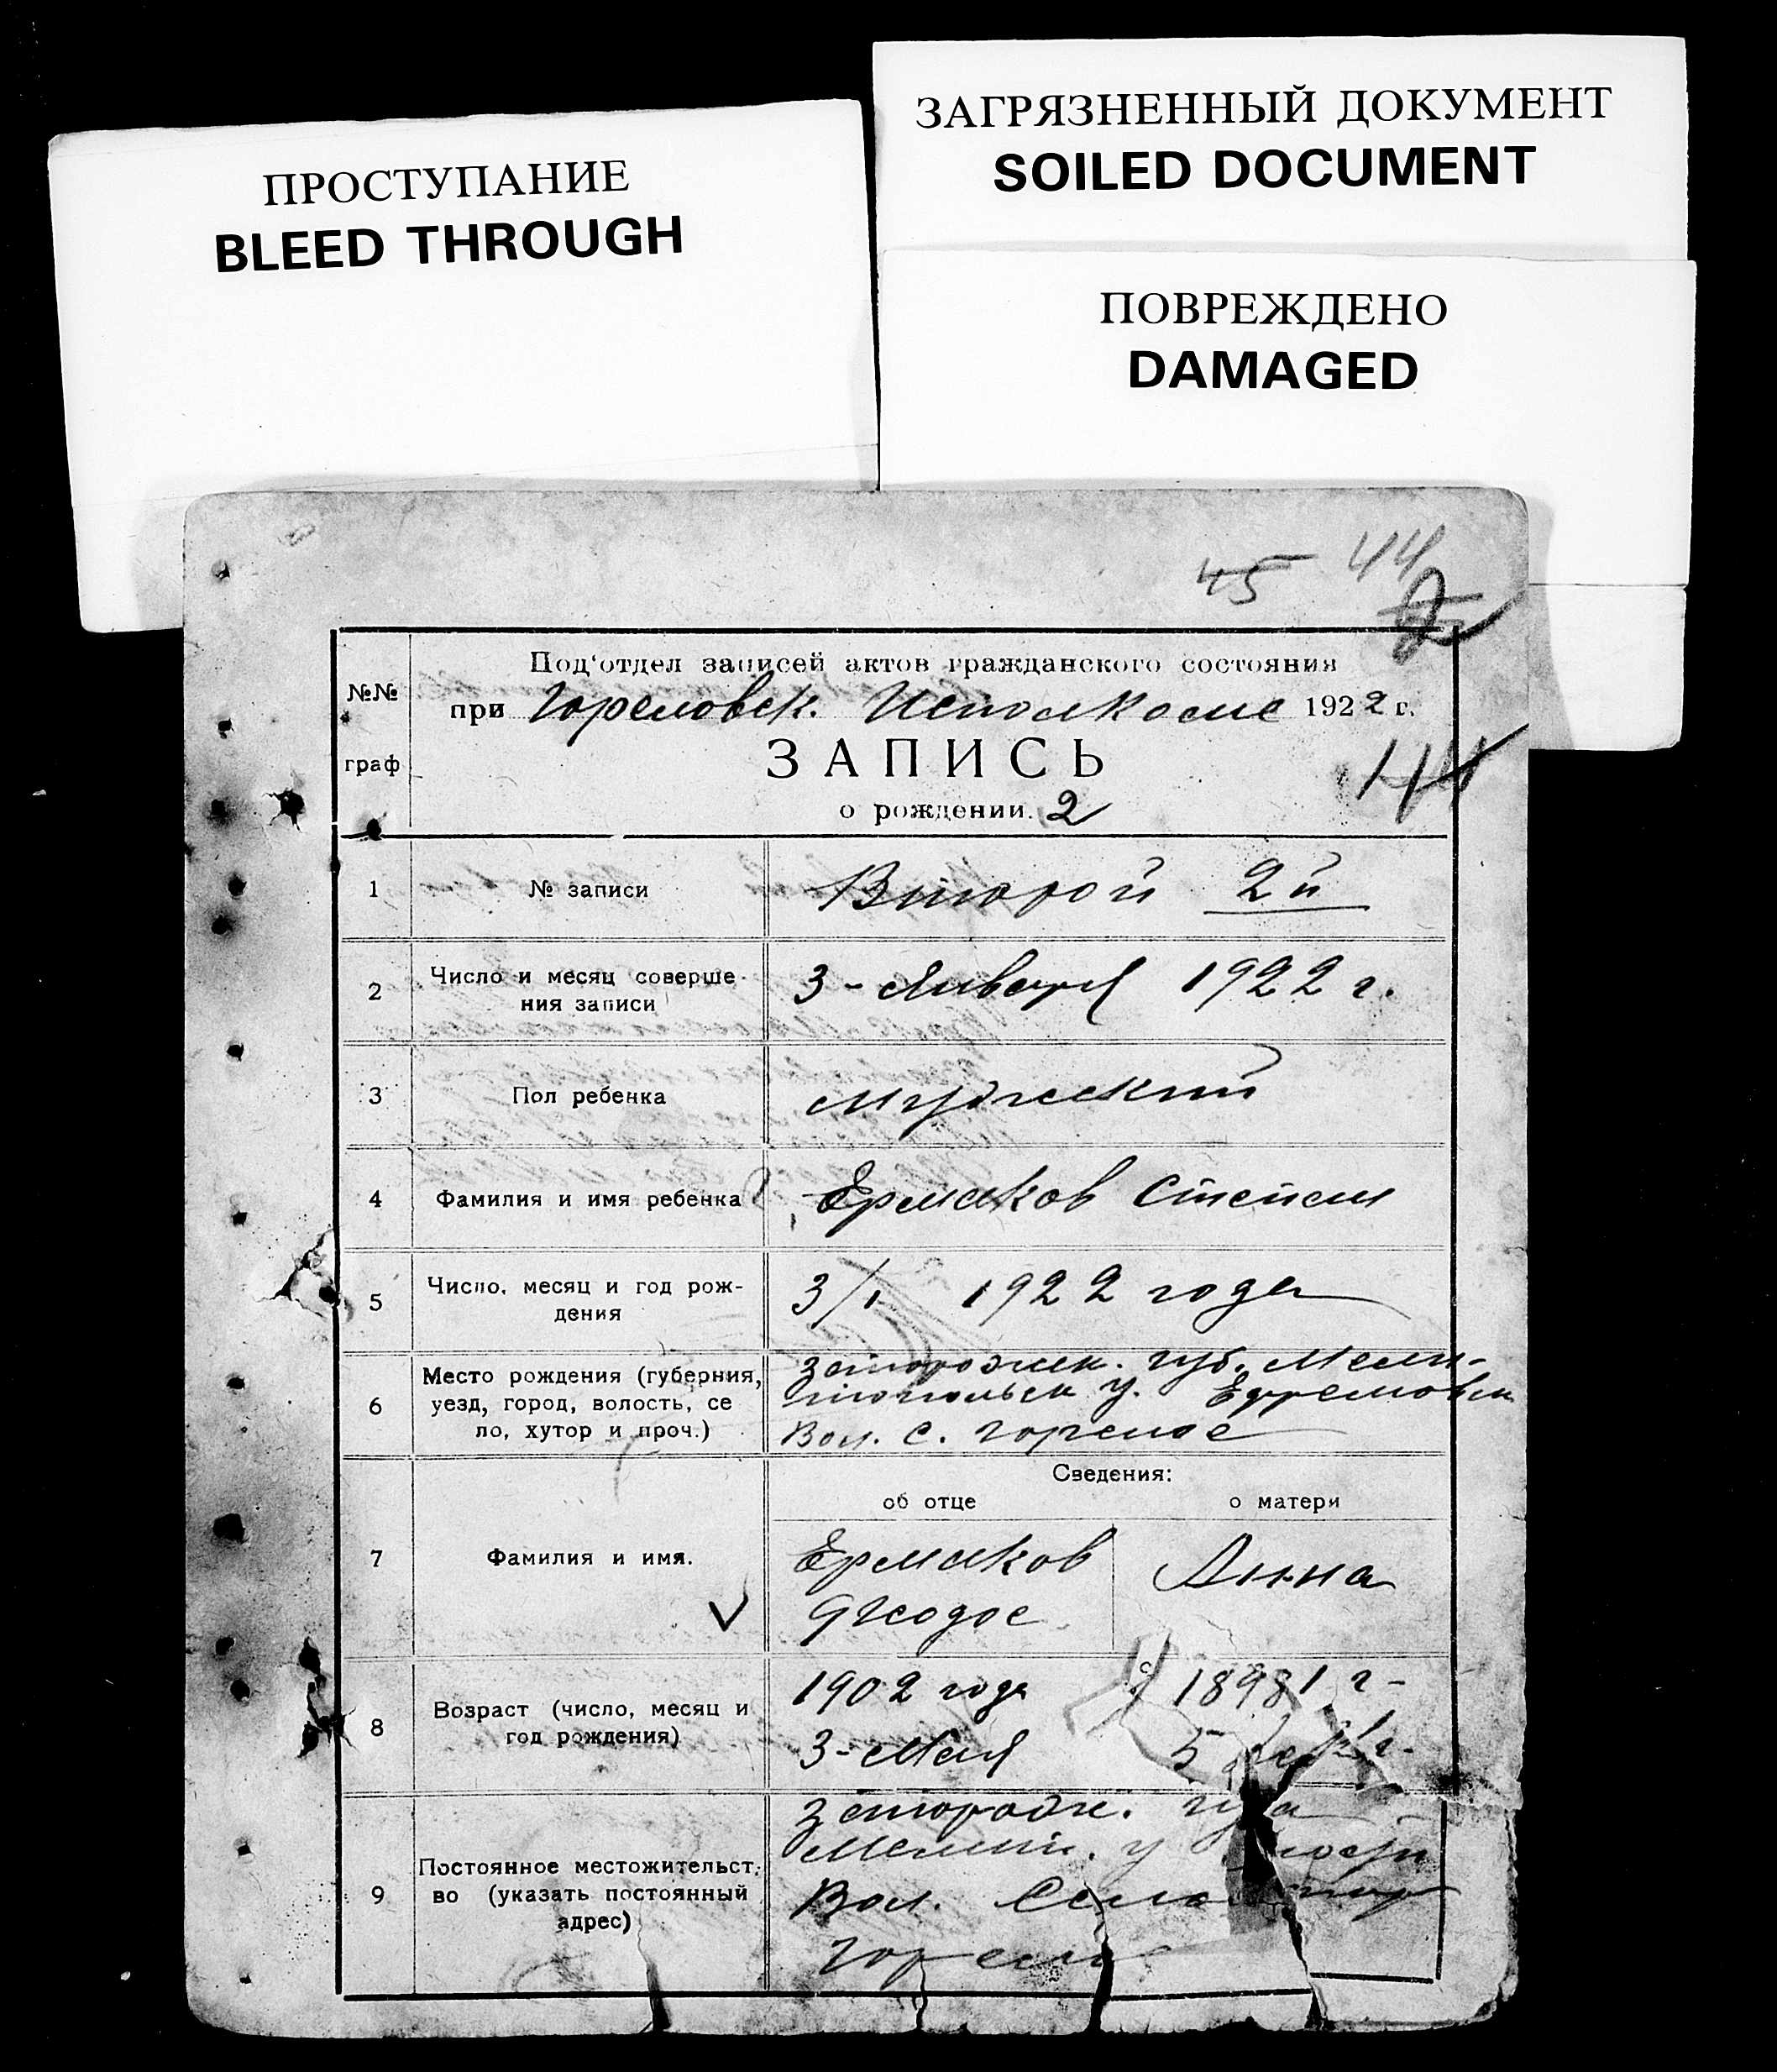 ПРОСТУПАНИЕ
BLEED THROUGH
ЗАГРЯЗНЕННЫЙ ДОКУМЕНТ
SOILED DOCUMENT
ПОВРЕЖДЕНО
DAMAGED
45 44
2
Под'отдел записей актов гражданского состояния
№№ граф
при Гореловск. Исполкоме 1922 г.
ЗАПИСЬ
о рождении. 2
1 № записи
Второй 2й
2 Число и месяц соверше
ния записи
3 - Января 1922 г.
3 Пол ребенка
мужеский
4 Фамилия и имя ребенка
Ермаков Степан
5 Число, месяц и год рож-
дения
3/1 1922 года
6 Место рождения (губерния,
уезд, город, волость, се
ло, хутор и проч.)
Запорожск. губ. Мели-
топольск у. Ефремовск
Вол. с. Горелое
Сведения:
об отце о матери
7 Фамилия и имя.
Ермаков Анна
8 Возраст (число, месяц и
год рождения)
1902 года
3 - Мая 5
9 Постоянное местожительст-
во (указать постоянный
адрес)
Запорож.
Мелит. у
Вол. Село